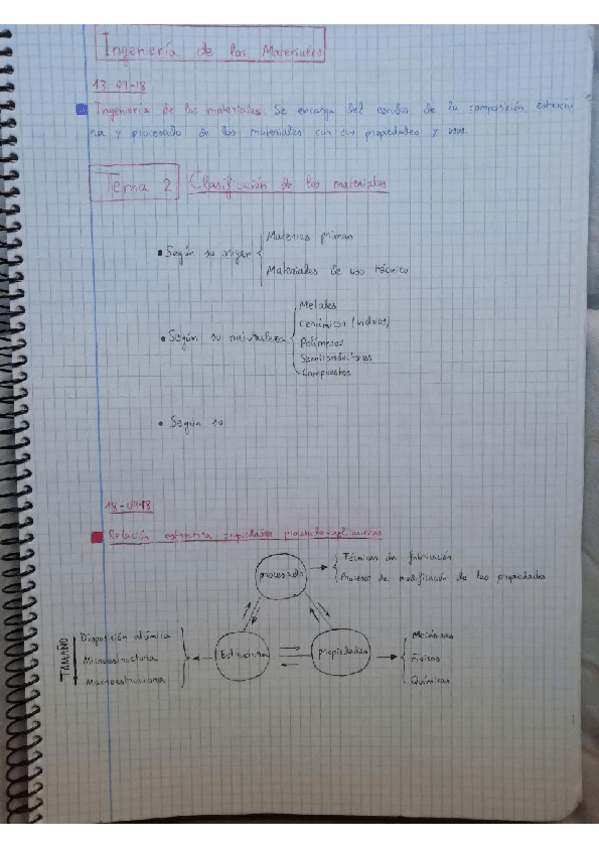 Ingeniería de los Materiales
13-09-18
Ingeniería de los materiales. Se encarga del estudio de la composición, estructu
ra y procesado de los materiales con sus propiedades y usos.
Tema 2 Clasificación de los materiales
Según su origen
Materias primas
Materiales de uso técnico
Según su naturaleza
Metales
Cerámicos (vidrios)
Polímeros
Semiconductores
Compuestos
Según su
18-09-18
Relación estructura propiedades procesado-aplicaciones
procesado
Técnicas de fabricación
Procesos de modificación de las propiedades
TAMAÑO
Disposición atómica
Microestructura
Macroestructura
Estructura
propiedades
Mecánicas
Físicas
Químicas